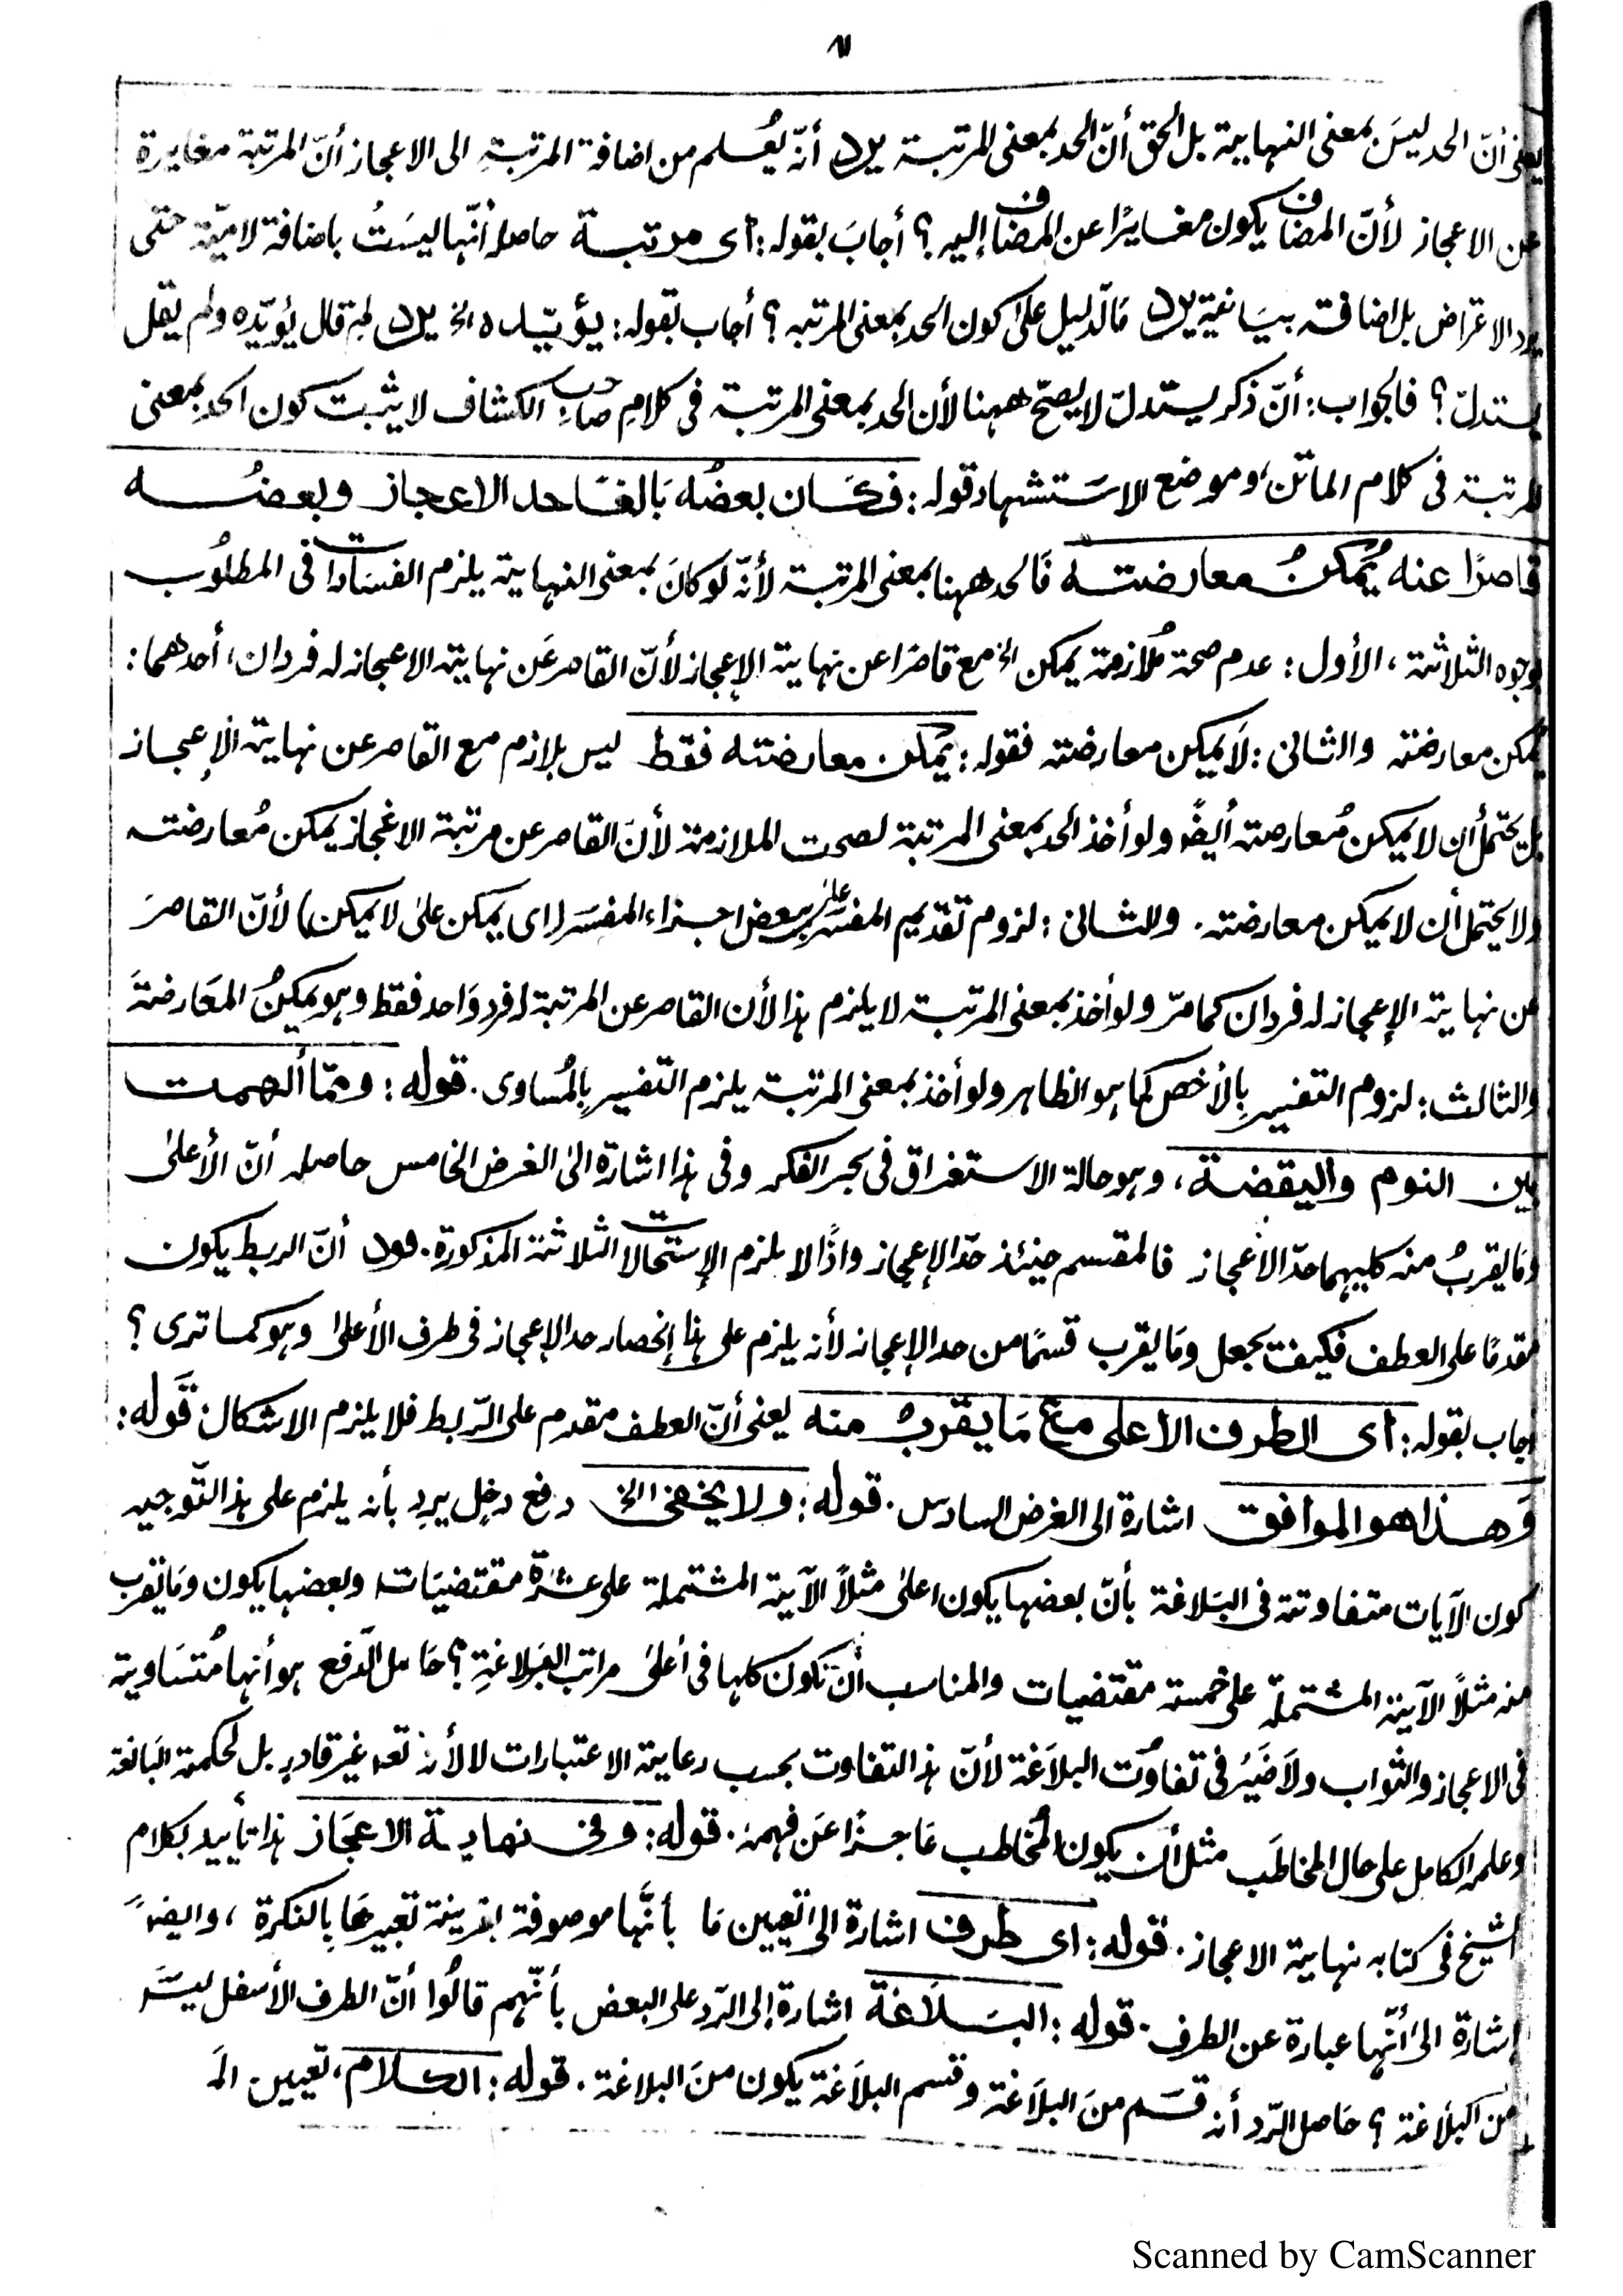 ٨١
يعنى أنّ الحد ليسَ بمعنى النهاية بل الحق أنّ الحد بمعنى المرتبة يرد أنّه يُعلم من اضافة المرتبةِ الى الاعجاز أنّ المرتبة مغايرة
عن الاعجاز لأنّ المضاف يكون مغايرًا عن المضاف إليه؟ أجابَ بقوله: أى مرتبة حاصله أنّها ليسَتْ باضافة لاميّة حتى
يرد الاعتراض بل اضافته بيَانية يرد مَا الدّليل على كون الحدِ بمعنى المرتبه؟ أجاب بقوله: يؤيّده الخ يرد لِمَ قال يُؤيّده ولم يقل
يستدلّ؟ فالجواب: أنّ ذكر يستدلّ لا يصحّ ههنا لأن الحد بمعنى المرتبة فى كلامِ صاحب الكشاف لا يثبت كون الحد بمعنى
المرتبة فى كلام الماتن، وموضع الاستشهاد قوله: فكَان بعضُه بَالغَا حد الاعجاز وبعضُه
قاصرًا عنه يُمكنُ معارضته فَالحد ههنا بمعنى المرتبة لأنّه لو كانَ بمعنى النهاية يلزم الفسَادات فى المطلُوب
بوجوه الثلاثة، الأول: عدم صحة مُلازمة يمكن الخ مع قاصرًا عن نهاية الإعجاز لأنّ القاصر عَن نهاية الاعجاز له فردان، أحدهما:
يُمكن معارضته والثانى: لَا يمكن معارضته فقوله: يمكن معارضته فقط ليس بلازم مع القاصر عن نهاية الإعجاز
بل يحتمل أن لا يمكن مُعارضته أيضًا ولو أخذ الحد بمعنى المرتبة لصحت الملازمة لأنّ القاصر عن مرتبة الاعجاز يمكن مُعارضته
ولا يحتمل أن لا يمكن معارضته. والثانى: لزوم تقديم المفسَّر على بعض اجزاء المفسَر (اى يمكن على لا يمكن) لأنّ القاصرَ
عن نهاية الإعجاز له فردان كما مرّ ولو أخذ بمعنى المرتبة لا يلزم هذا لأن القاصر عن المرتبة له فرد وَاحد فقط وهو يمكنُ المعَارضةَ
والثالث: لزوم التفسيرِ بِالأخص كما هو الظاهر ولو أخذ بمعنى المرتبة يلزم التفسير بِالمُساوى. قوله: وممّا ألهمت
بين النوم واليقضة، وهو حالة الاستغراق فى بحر الفكر وفى هذا اشارة الىٰ الغرض الخامس حاصله أنّ الأعلىٰ
ومَا يقربُ منه كليهما حدّ الاعجاز فالمقسم حينئذ حدّ الإعجاز واذًا لا يلزم الإستحالات الثلاثة المذكورة. يرد أنّ الربط يكون
مقدمًا على العطف فكيف يجعل ومَا يقرب قسمًا من حد الإعجاز لأنه يلزم على هذا إنحصار حد الإعجاز فى طرف الأعلىٰ وهو كما ترى؟
أجاب بقوله: أى الطرف الأعلى معَ مَا يقربُ منه يعنى أنّ العطف مقدم على الرّبط فلا يلزم الاشكال قَوله:
وَهذا هو الموافق اشارة الى الغرض السادس. قوله: ولا يخفى الخ دفع دخلٍ يردِ بأنه يلزم على هذا التّوجيه
كون الآيات متفاوتة فى البَلاغة بأنّ بعضها يكون اعلىٰ مثلًا الآية المشتملة على عشرة مقتضيَات وبعضها يكون ومَا يقرب
منه مثلًا الآية المشتملة على خمسة مقتضيات والمناسب أن تكون كلها فى أعلىٰ مراتب البَلاغةِ؟ حَاصل الدّفع هو أنها مُتسَاوية
فى الاعجاز والثواب ولَا ضَيْرُ فى تفاوُت البلَاغة لأنّ هذا التفاوت بحسب رعاية الاعتبارات لا لأنه تعـ غير قادرٍ بل لحكمة البَالغة
وعلمه الكامل على حال المخاطَب مثل أن يكون المُخاطب عَاجزًا عَن فهمه. قوله: وفى نهاية الاعجَاز هذا تأييد بكلام
الشيخ فى كتابه نهاية الاعجاز. قوله: اى طرف اشارة الى تعيين مَا بأنَّها موصوفة بقرينة تعبيرهَا بِالنكرة، وايضًا
إشارة الىٰ أنّها عبارة عن الطرف. قوله: البَلَاغة اشارة إلى الرّد على البعض بأنّهم قالُوا أنّ الطرف الأسفل ليسَ
من البلَاغة؟ حَاصل الرّد أنه قسَم منَ البلَاغة وقسم البلَاغة يكون منَ البلاغة. قوله: الكلام، تعيين الَـ
Scanned by CamScanner